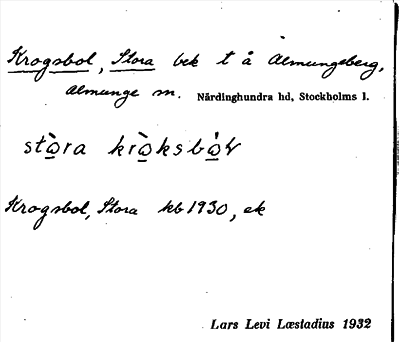 Krogsbol, Stora bek t å Almungeberg,
Almunge sn. Närdinghundra hd, Stockholms l.
stò̲ra krò̲ksbò̲л
Krogsbol, Stora kb 1930, ek
Lars Levi Læstadius 1932